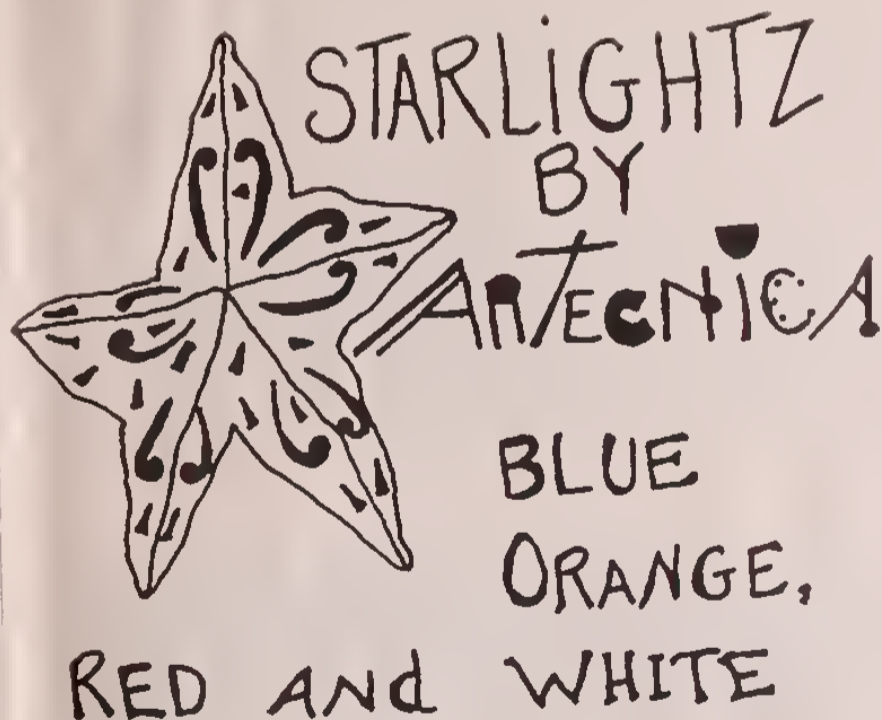 STARLiGHTZ
BY
ARTECNiCA
BLUE
ORANGE,
RED ANd WHITE